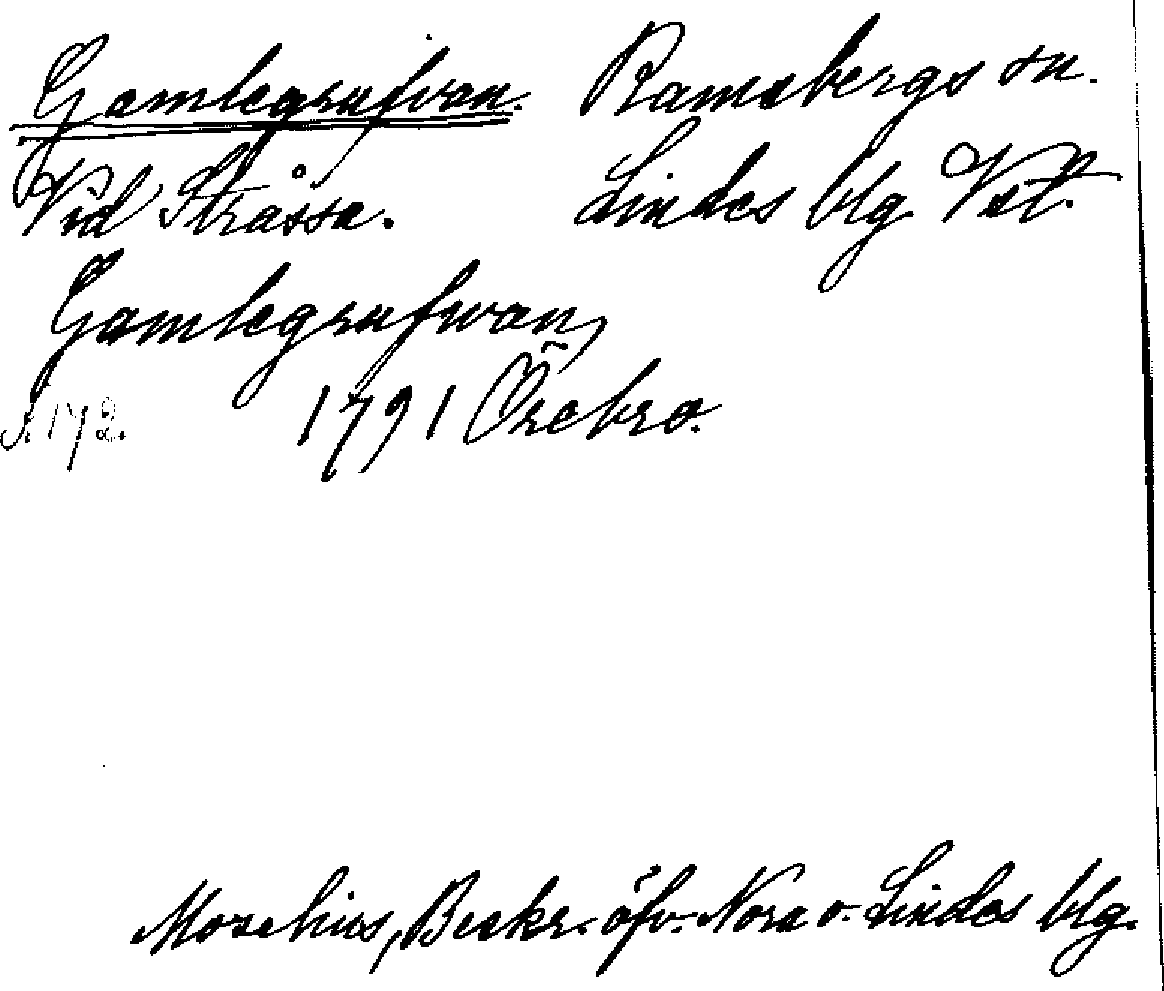 Gamlegrufvan. Ramsbergs sn.
Vid Stråssa. Lindes blg. Vstl.
Gamlegrufvan,
S. 172. 1791 Örebro.
Morelius, Beskr. öfv. Nora o. Lindes blg.